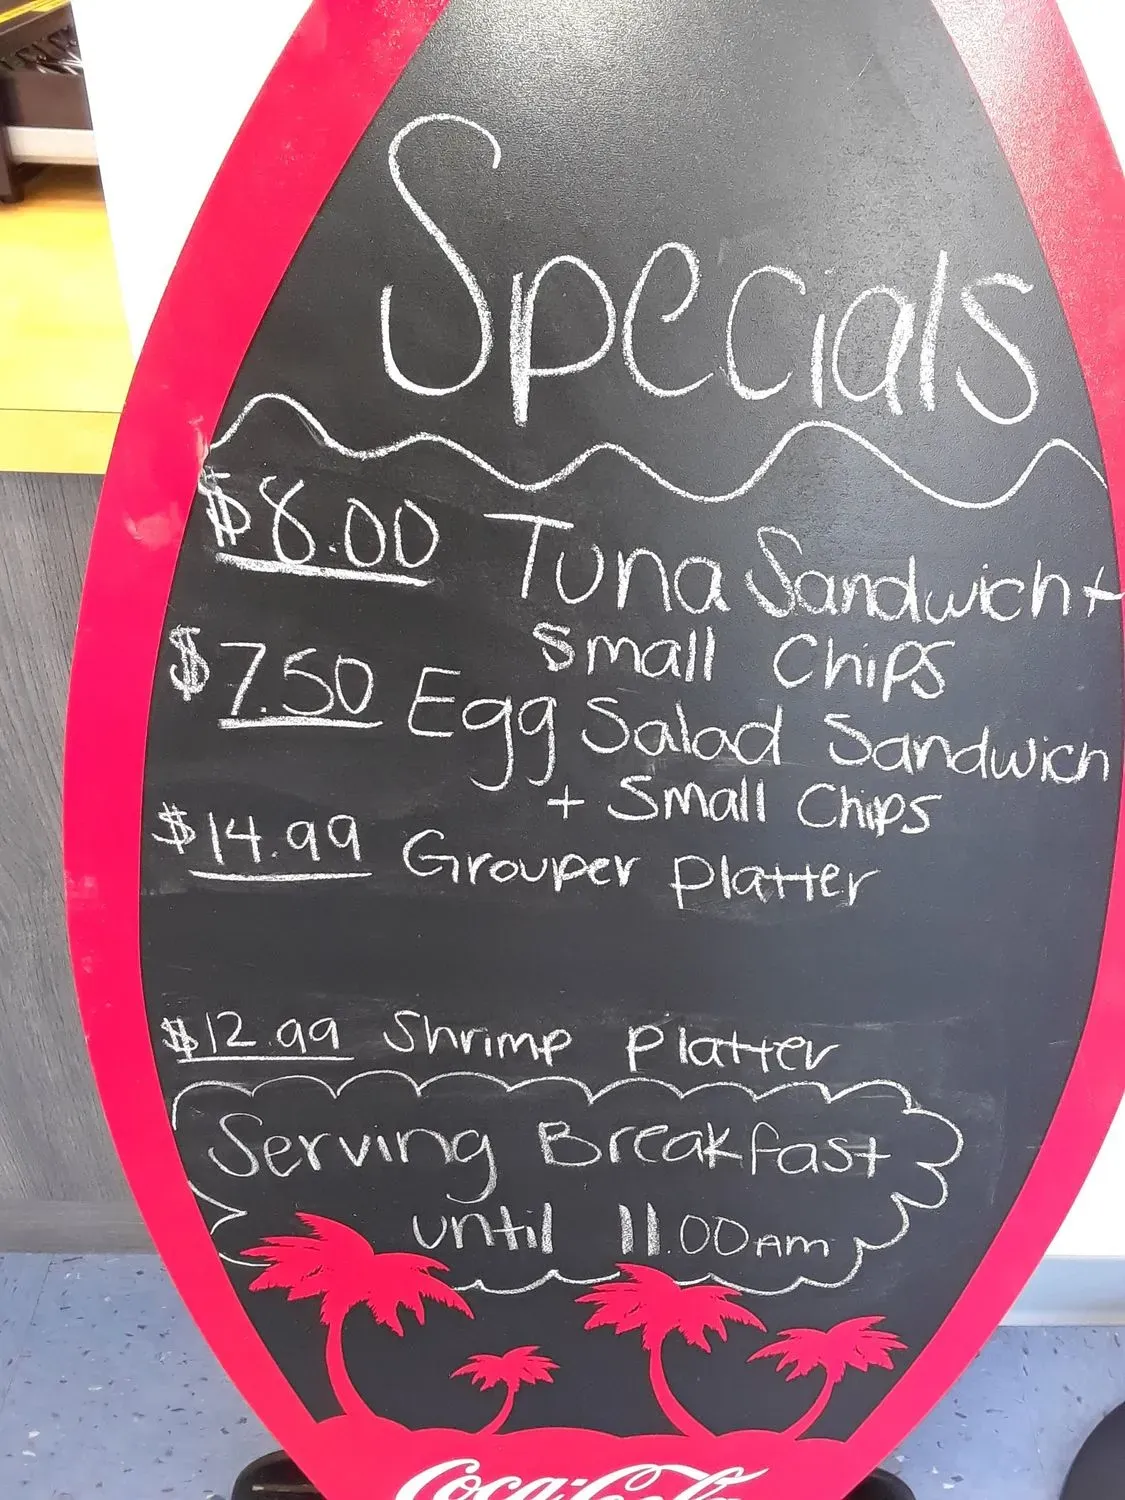 Specials
$8.00 Tuna Sandwich +
Small Chips
$7.50 Egg Salad Sandwich
+ Small Chips
$14.99 Grouper Platter
$12.99 Shrimp Platter
Serving Breakfast
until 11.00AM
Coca-Cola